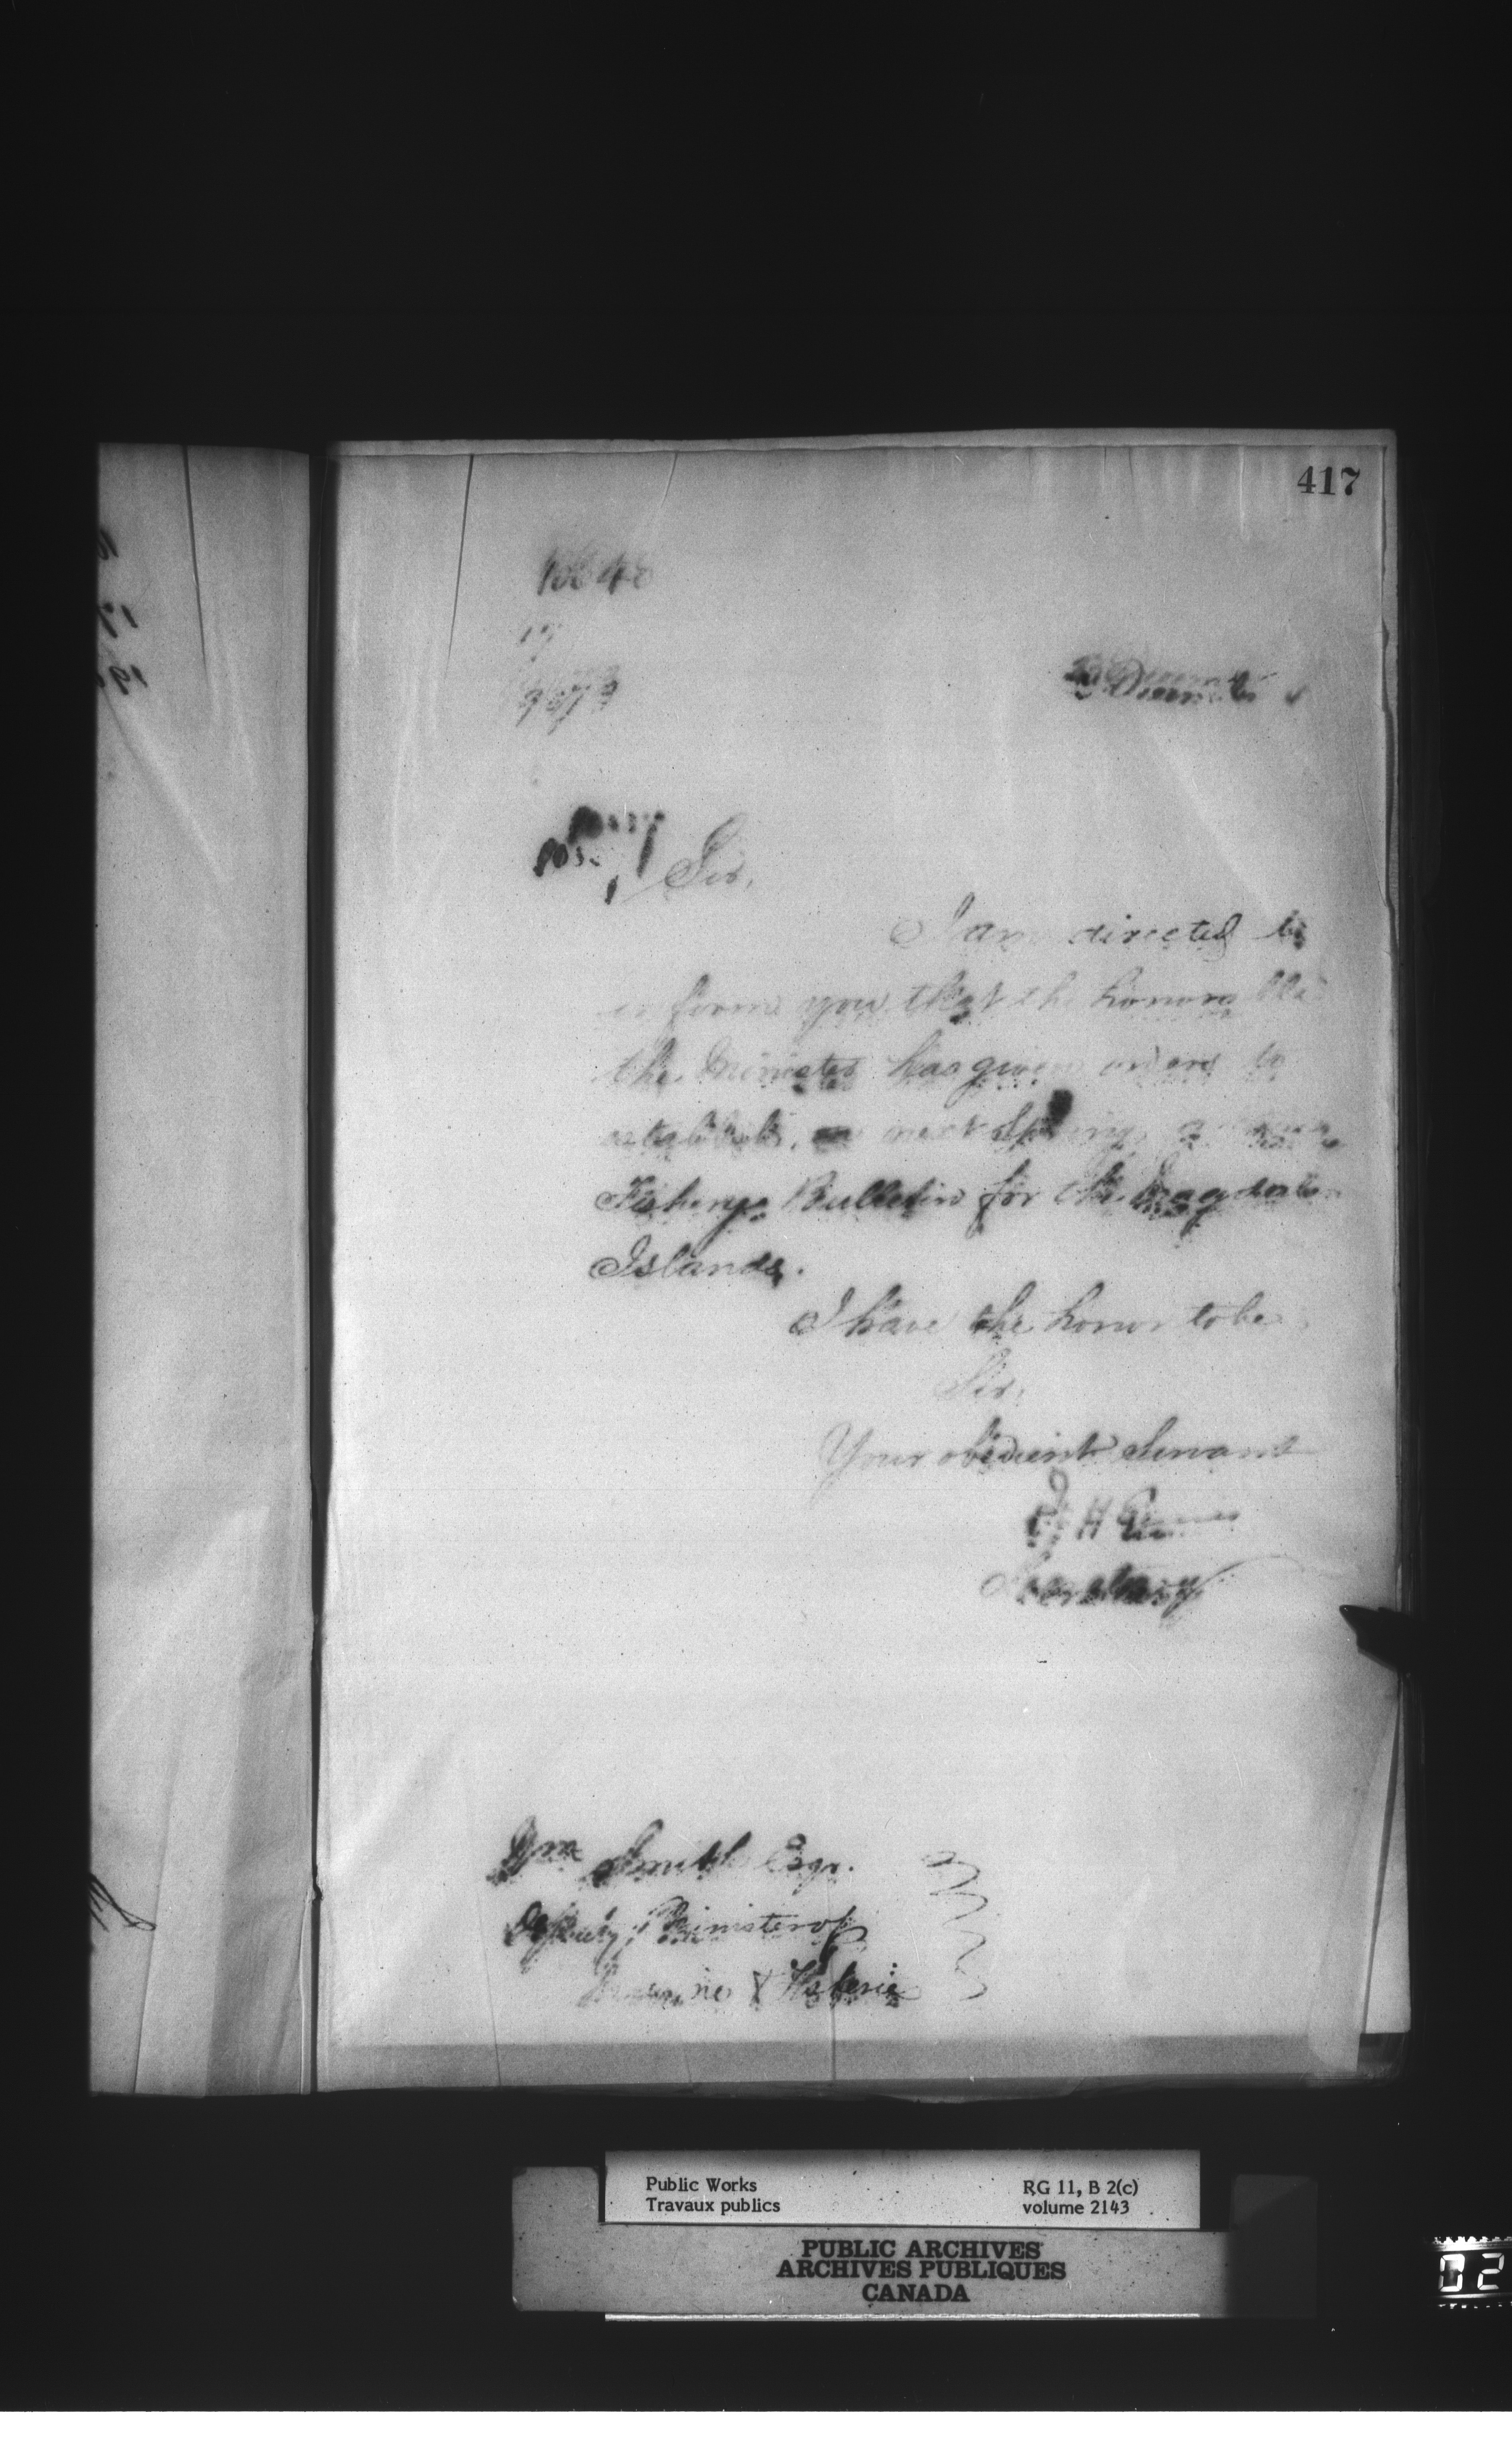 417
December
Sir,
I am directed to
inform you that the honorable
the Minister has given orders to
establish, next Spring, a
Fishery Bulletin for the Magdalen
Islands.
I have the honor to be
Sir,
Your obedient Servant
Secretary
Wm Smith Esqr.
Deputy Minister of
Marine & Fisheries
Public Works RG 11, B 2(c)
Travaux publics volume 2143
PUBLIC ARCHIVES
ARCHIVES PUBLIQUES
CANADA
02